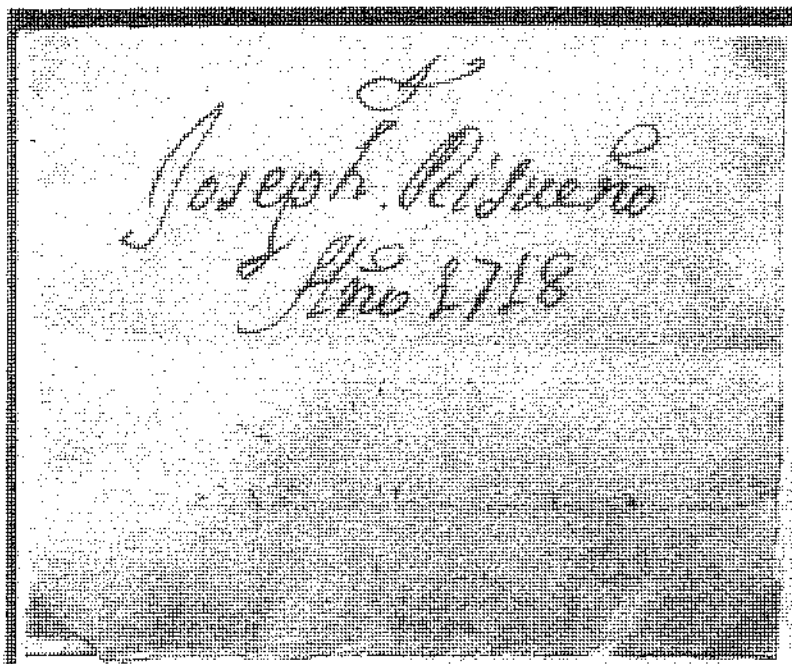 Joseph. Risueño
Año 1718